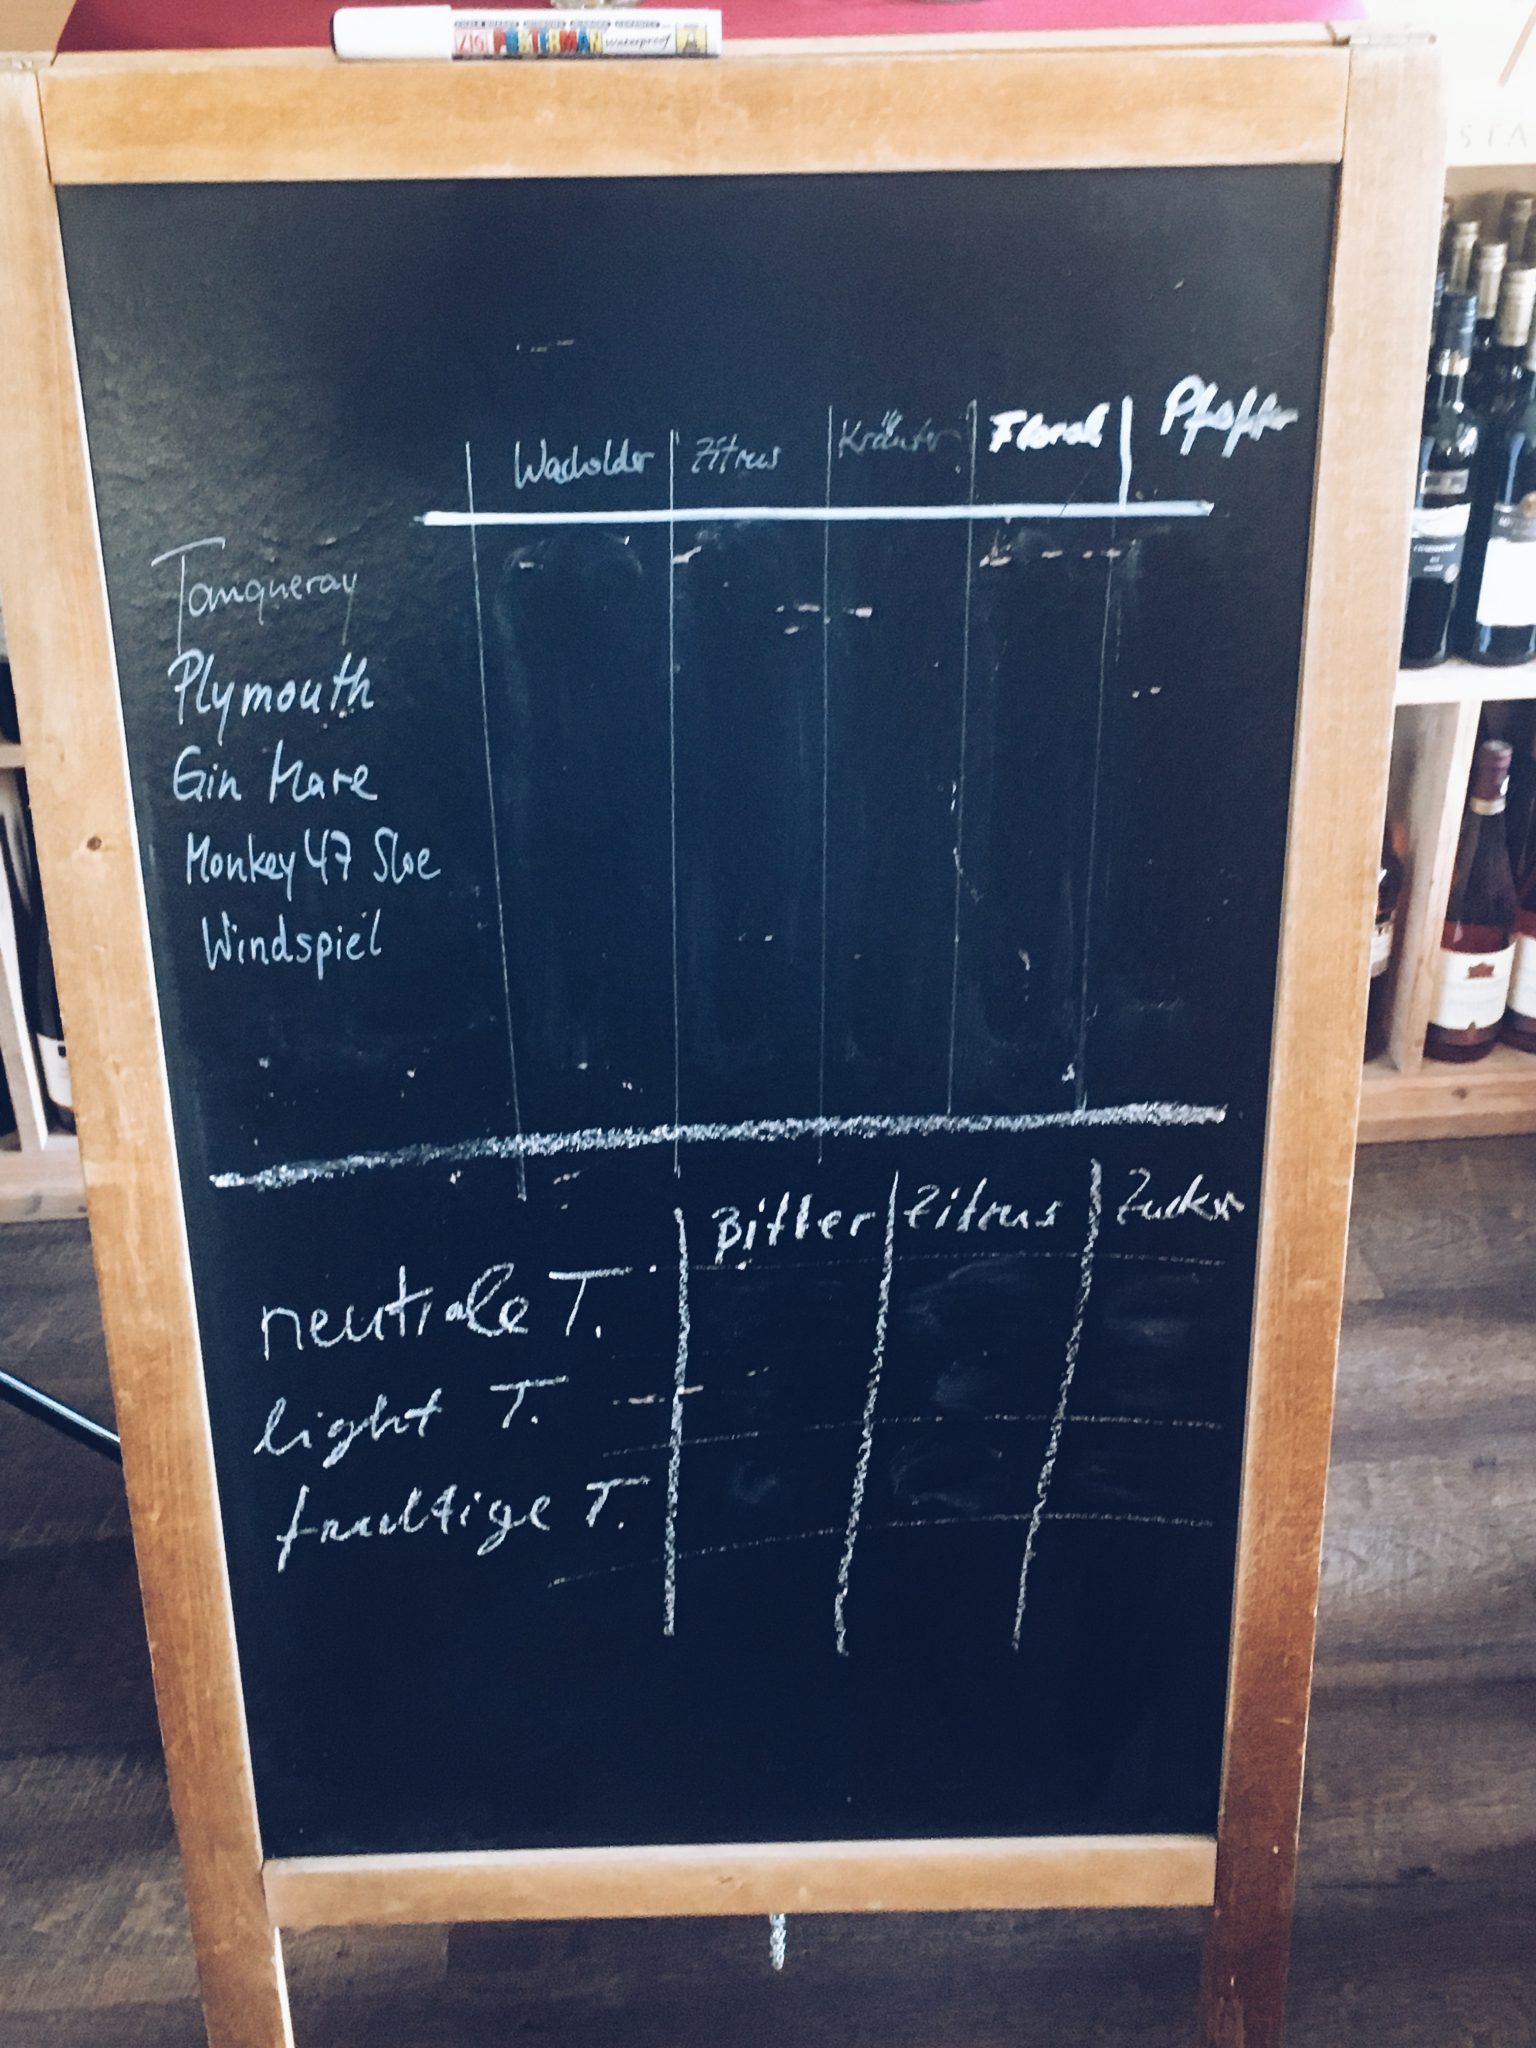 ZIG POSTERMAN waterproof
STA
Wacholder Zitrus Kräuter Floral Pfeffer
Tanqueray
Plymouth
Gin Mare
Monkey 47 Sloe
Windspiel
Bitter Zitrus Zucker
neutrale T.
light T.
fruchtige T.